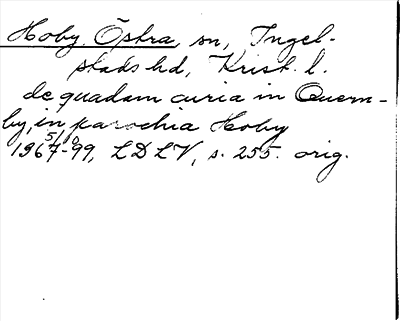 Hoby Östra sn, Ingel-
stads hd, Krist. l.
de quadam curia in Quern-
by, in parochia Hoby
5/10
1367-99, LDLV, s. 255. orig.